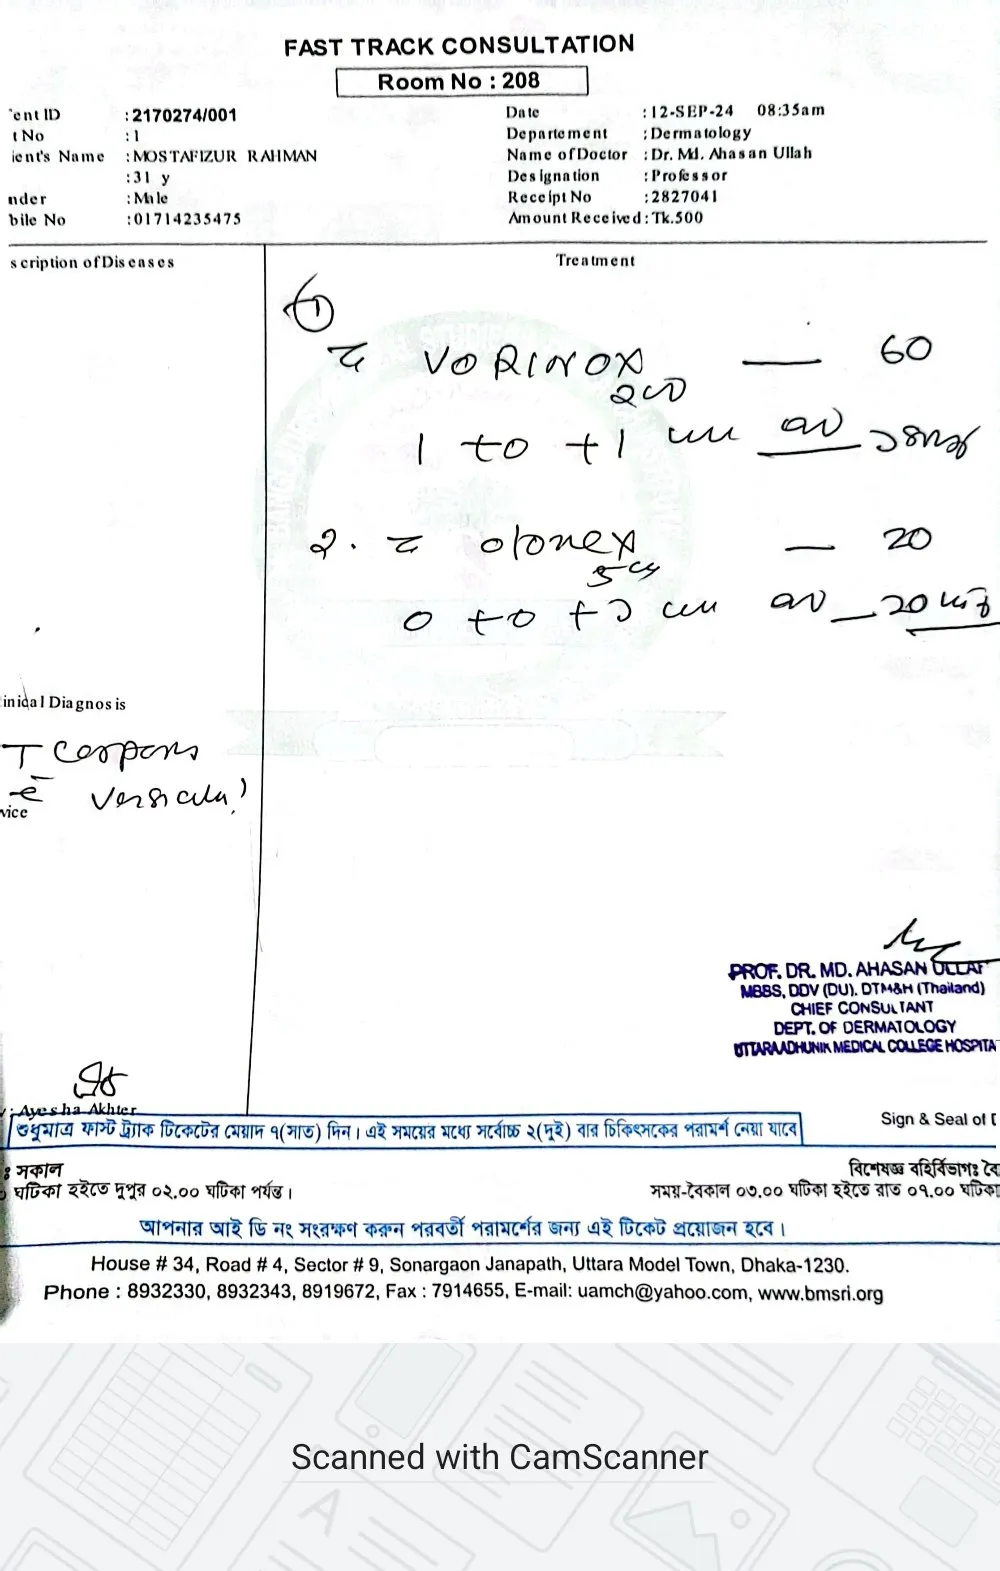 FAST TRACK CONSULTATION
Room No : 208
ent ID : 2170274/001
t No : 1
ient's Name : MOSTAFIZUR RAHMAN
: 31 y
nder : Male
bile No : 01714235475
Date : 12-SEP-24 08:35am
Departement : Dermatology
Name of Doctor : Dr. Md. Ahasan Ullah
Designation : Professor
Receipt No : 2827041
Amount Received : Tk.500
scription of Diseases
Treatment
1
VORINOX — 60
200
1 + 0 + 1
২. olonex — 20
5
0 + 0 + ১
inical Diagnosis
T corporis
c̄ versicular?
vice
PROF. DR. MD. AHASAN ULLAH
MBBS, DDV (DU). DTM&H (Thailand)
CHIEF CONSULTANT
DEPT. OF DERMATOLOGY
UTTARA ADHUNIK MEDICAL COLLEGE HOSPITA
: Ayesha Akhter
Sign & Seal of D
শুধুমাত্র ফাস্ট ট্র্যাক টিকেটের মেয়াদ ৭(সাত) দিন। এই সময়ের মধ্যে সর্বোচ্চ ২(দুই) বার চিকিৎসকের পরামর্শ নেয়া যাবে
ঃ সকাল
ঘটিকা হইতে দুপুর ০২.০০ ঘটিকা পর্যন্ত।
বিশেষজ্ঞ বহির্বিভাগঃ বৈ
সময়-বৈকাল ০৩.০০ ঘটিকা হইতে রাত ০৭.০০ ঘটিকা
আপনার আই ডি নং সংরক্ষণ করুন পরবর্তী পরামর্শের জন্য এই টিকেট প্রয়োজন হবে।
House # 34, Road # 4, Sector # 9, Sonargaon Janapath, Uttara Model Town, Dhaka-1230.
Phone : 8932330, 8932343, 8919672, Fax : 7914655, E-mail: uamch@yahoo.com, www.bmsri.org
Scanned with CamScanner